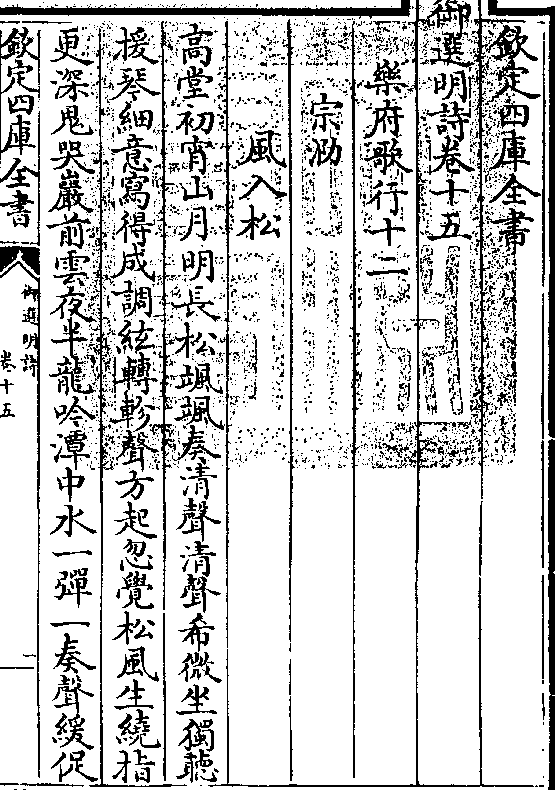 欽定四庫全書
御選明詩卷十五
樂府歌行十二
宗泐
風入松
高堂初宵山月明長松颯颯奏清聲清聲希微坐獨聽
援琴細意寫得成調絃轉軫聲方起忽覺松風生繞指
更深鬼哭巖前雲夜半龍吟潭中水一彈一奏聲緩促
欽定四庫全書
御選明詩
卷十五
一